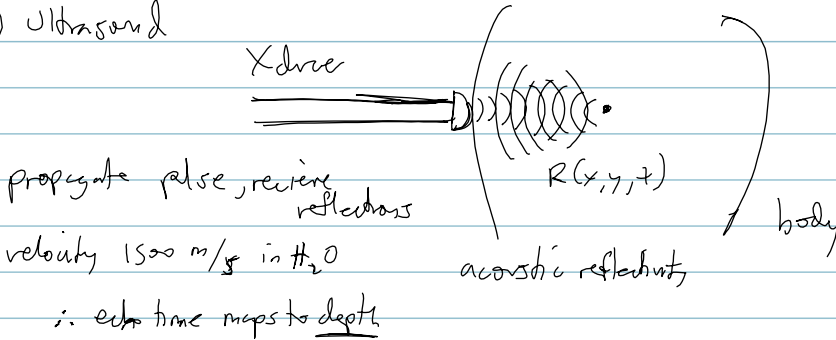 ) Ultrasound
Xducer
R(x,y,z)
propagate pulse, recieve
reflections
body
velocity 1500 m/s in H₂O
acoustic reflectivity
∴ echo time maps to depth